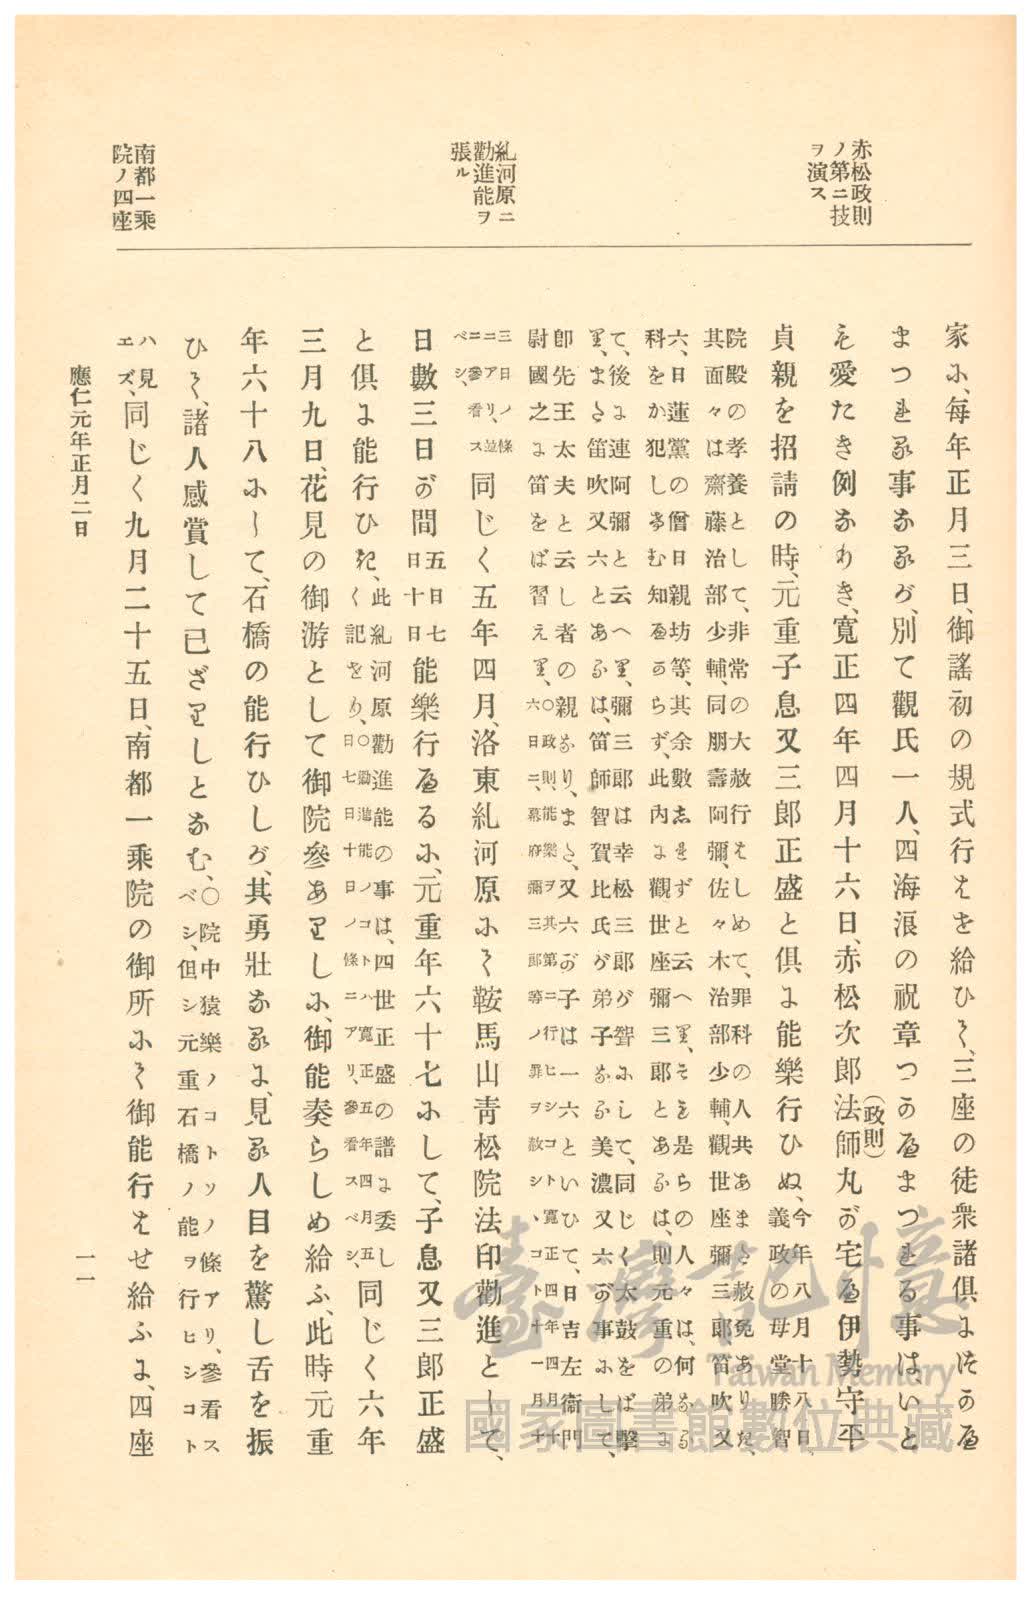 赤松政則
ノ第ニ技
ヲ演ス
糺河原ニ
勸進能ヲ
張ル
南都一乘
院ノ四座
家に、每年正月三日、御謠初の規式行はを給ひて、三座の徒衆諸俱につかへ
まつれる事なるが、別て觀氏一人、四海浪の祝章つかへまつれる事はいと
も愛たき例なりき、寬正四年四月十六日、赤松次郎法師丸が宅へ伊勢守平
(政則)
貞親を招請の時、元重子息又三郎正盛と俱に能樂行ひぬ、
今年八月十八日、
義政の母堂勝智
院殿の孝養として、非常の大赦行はしめて、罪科の人共あまた赦免ありけり、
其面々は齋藤治部少輔、同朋壽阿彌、佐々木治部少輔、觀世座彌三郎、笛吹又
六、日蓮黨の僧日親坊等、其余數志れずと云へり、それ是らの人々は、何なる
科をか犯しけむ知へからず、此内に觀世座彌三郎とあるは、則元重の弟に
て、後に連阿彌と云へり、彌三郎は幸松三郎が聟にして、同じく太鼓をば擊
り、また笛吹又六とあるは、笛師智賀比氏が弟子なる美濃又六が事にして、
卽先王太夫と云し者の親なり、また、又六が子は一六といひて、日吉左衞門
尉國之に笛をば習えり、
○政則、能樂ヲ其第ニ行ヒシコト、寬正四年四月十
六日ニ、幕府彌三郎等ノ罪ヲ赦シ、コト十一月十
三日ノ條
ニアリ、並
ニ參看ス
ベシ、
同じく五年四月、洛東糺河原にて鞍馬山靑松院法印勸進として、
日數三日が間
五日七
日十日
能樂行へるに、元重年六十七にして、子息又三郎正盛
と俱に能行ひき、
此糺河原勸進能の事は、四世正盛の譜に委し
く記をり、
○勸進能ノコトハ寬正五年四月五
日七日十日ノ條ニアリ、參看スベシ、
同じく六年
三月九日、花見の御游として御院參ありしに、御能奏らしめ給ふ、此時元重
年六十八にして、石橋の能行ひしが、其勇壯なるに、見る人目を驚し舌を振
ひて、諸人感賞して已ざりしとなむ、
○院中猿樂ノコトソノ條アリ、參看ス
ベシ、但シ元重石橋ノ能ヲ行ヒシコト
ハ見
エズ、
同じく九月二十五日、南都一乘院の御所にて御能行はせ給ふに、四座
應仁元年正月二日
一一
臺灣記憶
Taiwan Memory
國家圖書館數位典藏